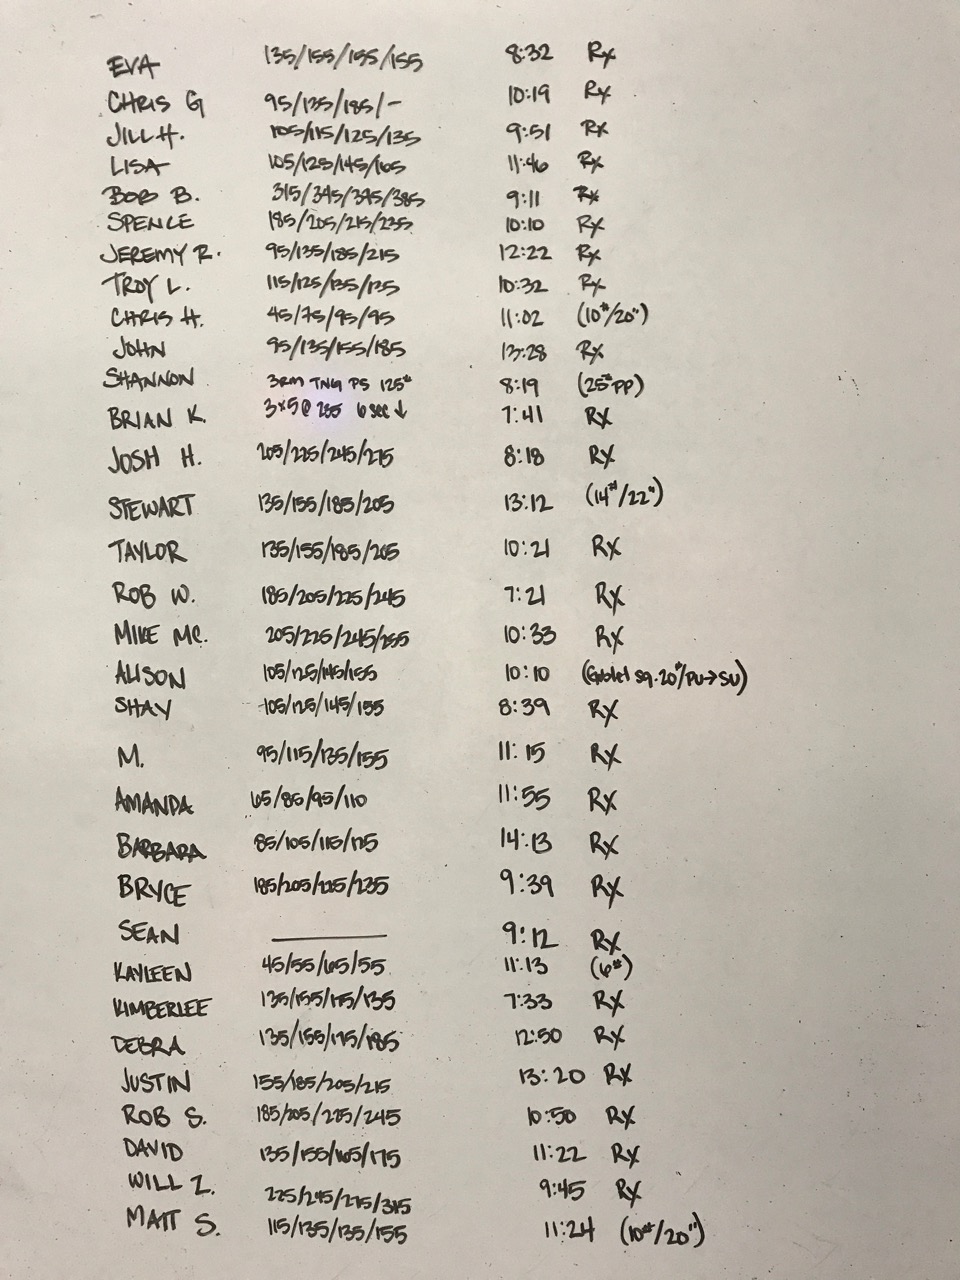 EVA 135/155/155/155 8:32 Rx
CHRIS G 95/135/185/- 10:19 Rx
JILL H. 105/115/125/135 9:51 Rx
LISA 105/125/145/165 11:46 Rx
BOB B. 315/345/375/385 9:11 Rx
SPENCE 185/205/215/235 10:10 Rx
JEREMY R. 95/135/185/215 12:22 Rx
TROY L. 115/125/135/135 10:32 Rx
CHRIS H. 45/75/95/95 11:02 (10#/20")
JOHN 95/135/155/185 13:28 Rx
SHANNON 3RM TNG PS 125# 8:19 (25# PP)
BRIAN K. 3x5@ 255 6 sec ↓ 7:41 RX
JOSH H. 205/225/245/275 8:18 RX
STEWART 135/155/185/205 13:12 (14#/22")
TAYLOR 135/155/185/205 10:21 RX
ROB W. 185/205/225/245 7:21 RX
MIKE MC. 205/225/245/255 10:33 RX
ALISON 105/125/145/155 10:10 (Goblet sq. 20#/PU→SU)
SHAY 105/125/145/155 8:39 RX
M. 95/115/135/155 11:15 RX
AMANDA 65/85/95/110 11:55 RX
BARBARA 85/105/115/125 14:13 RX
BRYCE 185/205/225/235 9:39 RX
SEAN 9:12 RX
KAYLEEN 45/55/65/55 11:13 (6#)
KIMBERLEE 135/155/175/135 7:33 RX
DEBRA 135/155/175/185 12:50 RX
JUSTIN 155/185/205/215 13:20 RX
ROB S. 185/205/225/245 10:50 RX
DAVID 135/155/165/175 11:22 RX
WILL Z. 225/245/275/315 9:45 RX
MATT S. 115/135/135/155 11:24 (10#/20")